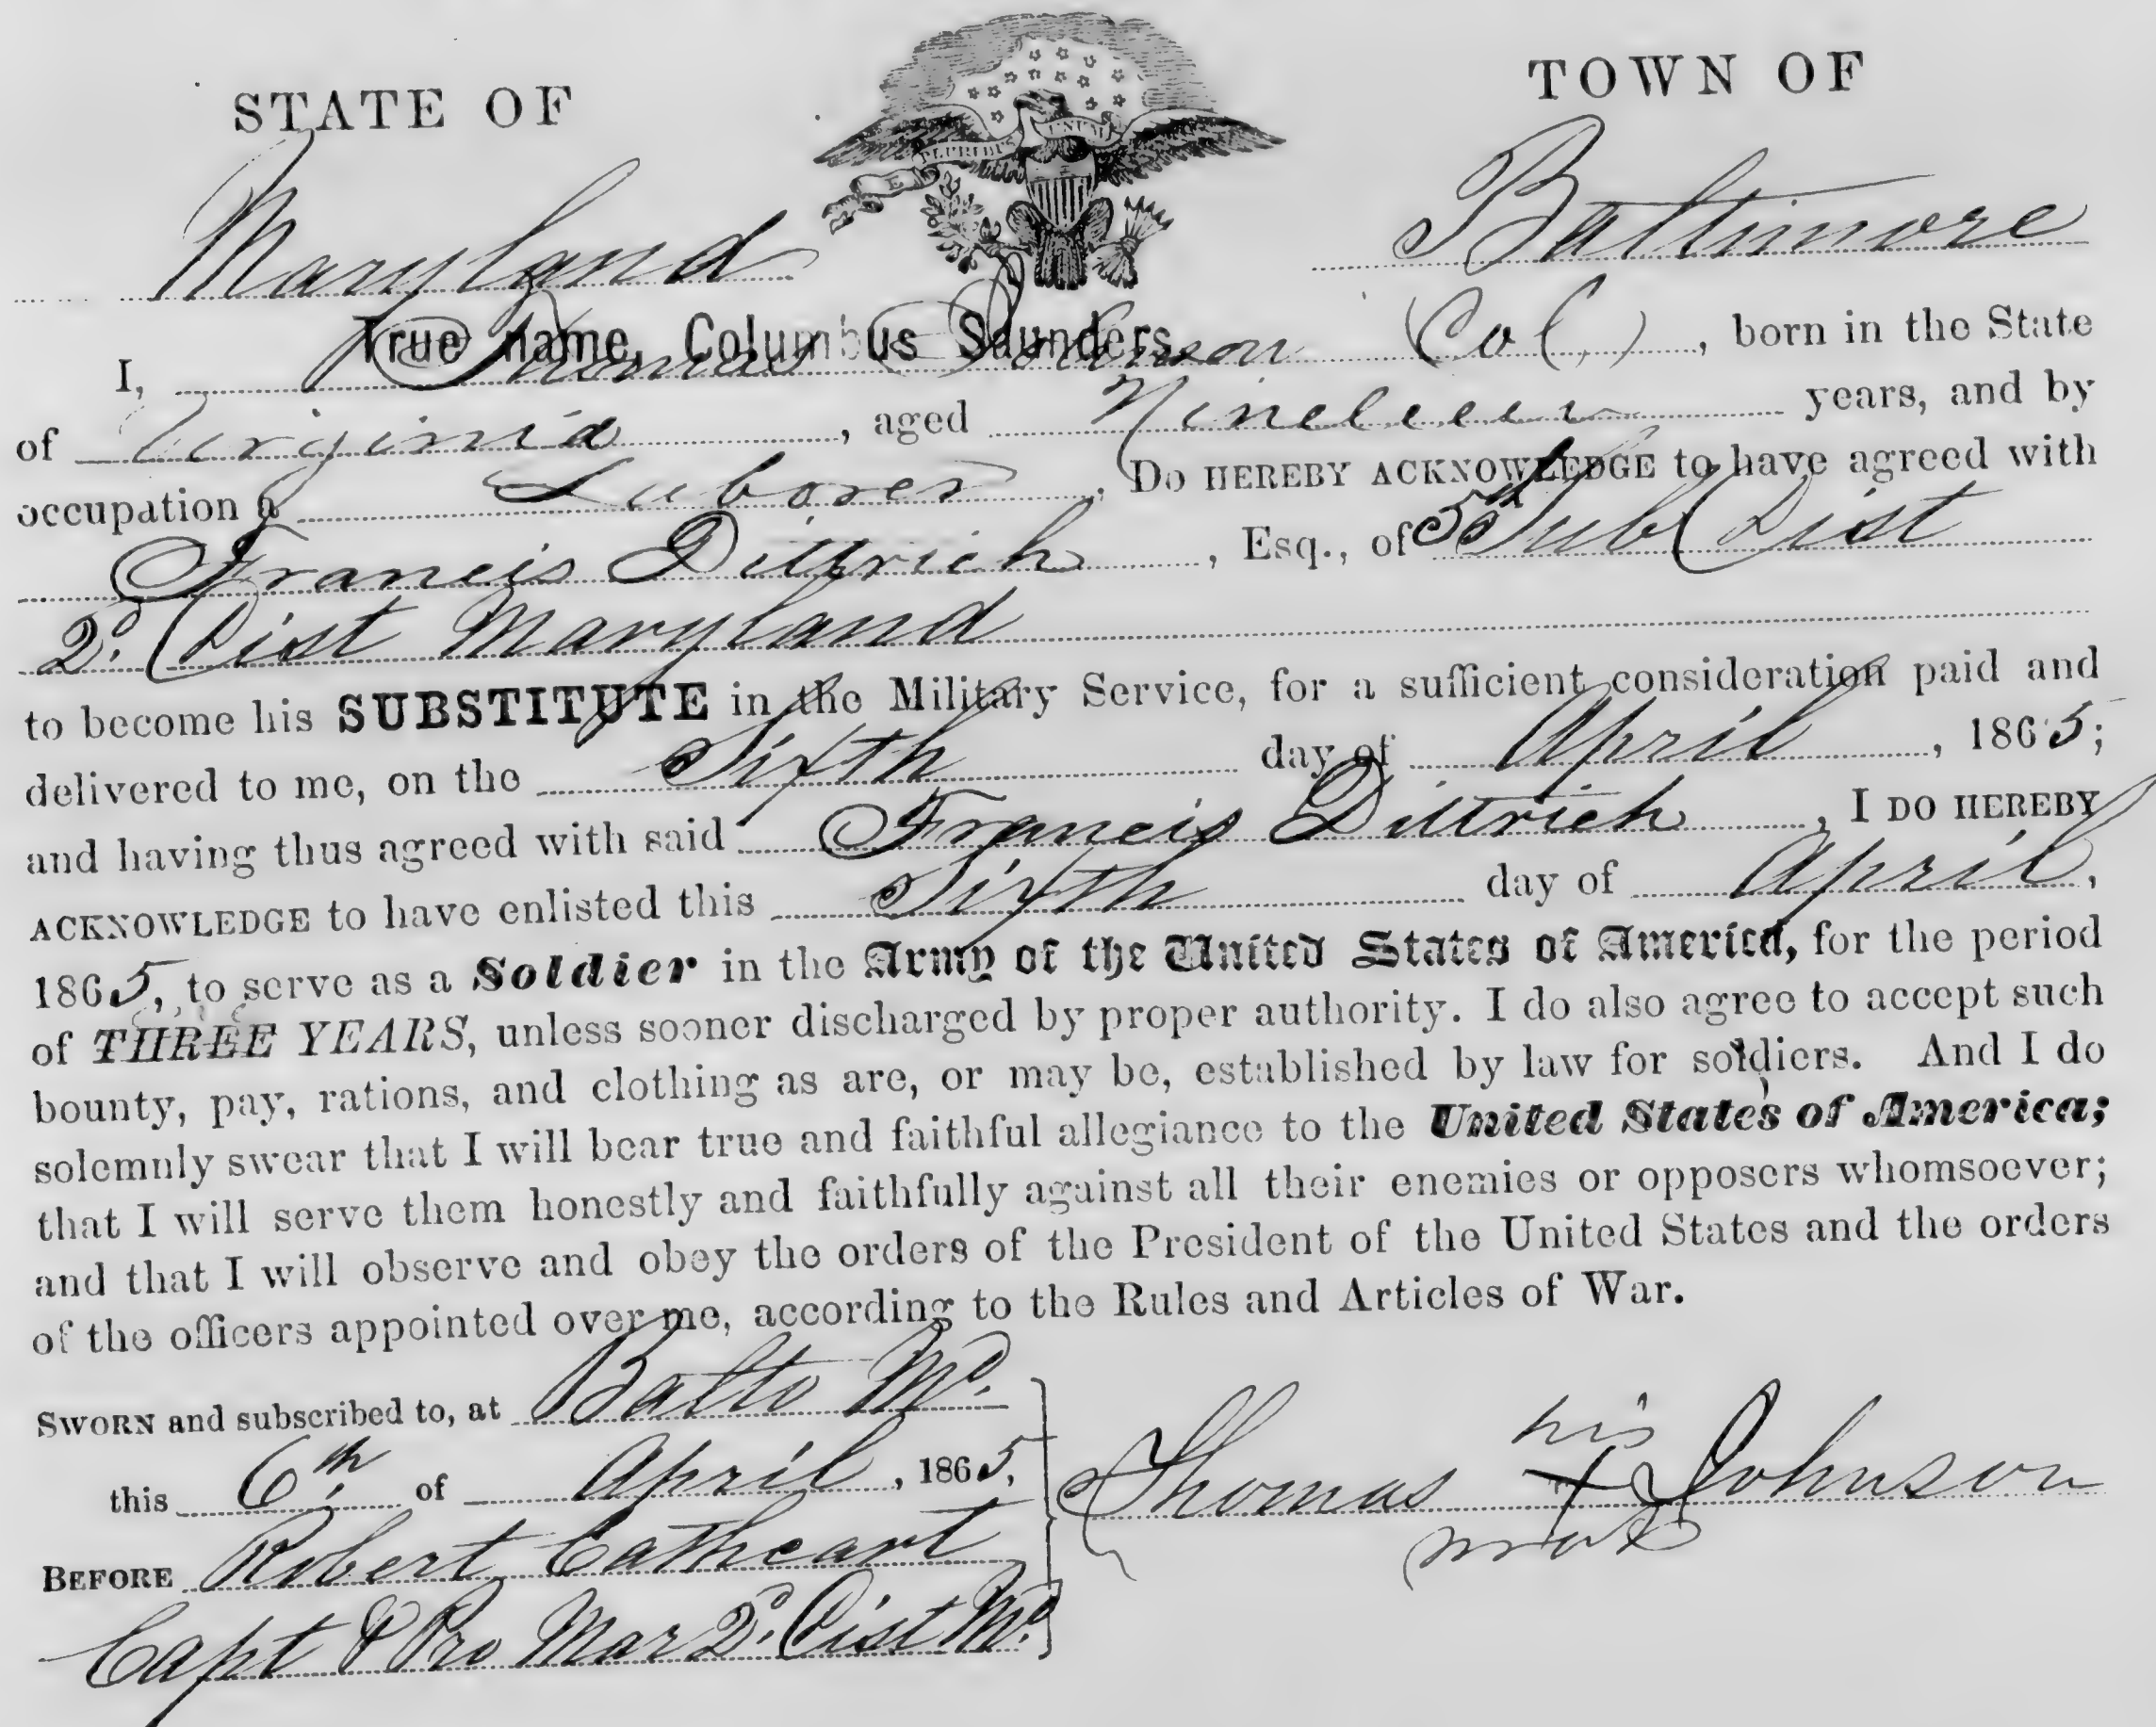 STATE OF
TOWN OF
E PLURIBUS UNUM
Maryland
Baltimore
True name, Columbus Saunders.
I, Thomas Johnson (Col), born in the State
of Virginia, aged Nineteen years, and by
occupation a Laborer, DO HEREBY ACKNOWLEDGE to have agreed with
Francis Dittrich, Esq., of 5th Sub Dist
2d. Dist Maryland
to become his SUBSTITUTE in the Military Service, for a sufficient consideration paid and
delivered to me, on the Sixth day of April, 1865;
and having thus agreed with said Francis Dittrich, I DO HEREBY
ACKNOWLEDGE to have enlisted this Sixth day of April,
1865, to serve as a Soldier in the Army of the United States of America, for the period
of THREE YEARS, unless sooner discharged by proper authority. I do also agree to accept such
bounty, pay, rations, and clothing as are, or may be, established by law for soldiers. And I do
solemnly swear that I will bear true and faithful allegiance to the United States of America;
that I will serve them honestly and faithfully against all their enemies or opposers whomsoever;
and that I will observe and obey the orders of the President of the United States and the orders
of the officers appointed over me, according to the Rules and Articles of War.
SWORN and subscribed to, at Balto Md.
this 6th. of April, 1865,
BEFORE Robert Cathcart
Capt & Pro Mar 2d. Dist Md.
his
Thomas X Johnson
mark